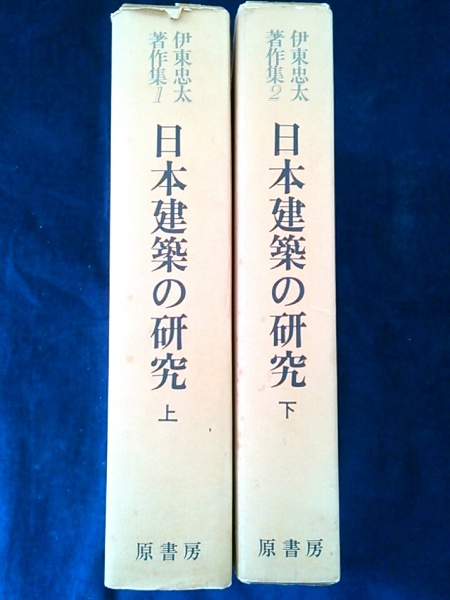 伊東忠太
著作集1
日本建築の研究
上
原書房
伊東忠太
著作集2
日本建築の研究
下
原書房